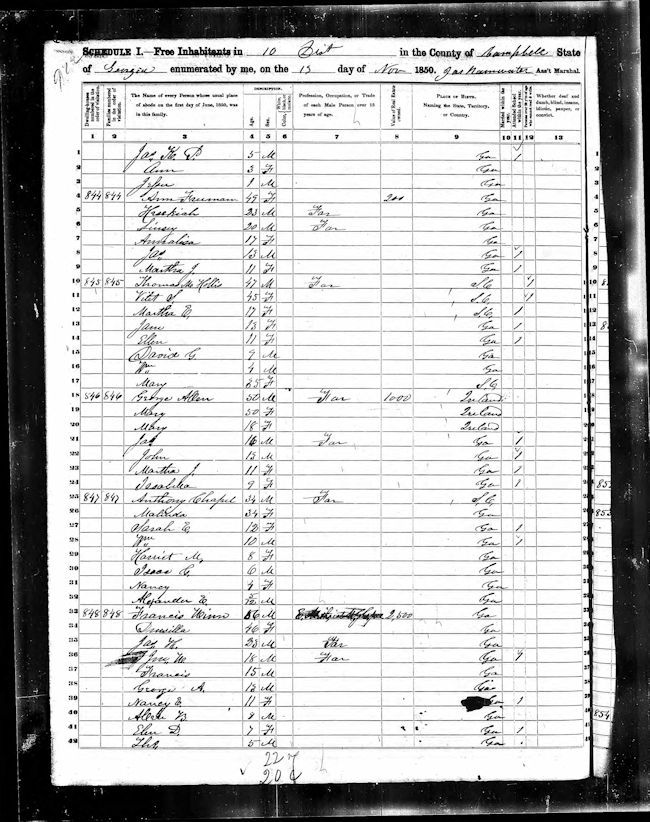 SCHEDULE I.—Free Inhabitants in 10 Dist in the County of Campbell State
of Georgia enumerated by me, on the 13 day of Nov 1850. Ass't Marshal.
DESCRIPTION.
Dwelling-houses numbered in the order of visitation.
Families numbered in the order of visitation.
The Name of every Person whose usual place of abode on the first day of June, 1850, was in this family.
Age.
Sex.
Profession, Occupation, or Trade of each Male Person over 15 years of age.
Value of Real Estate owned.
PLACE OF BIRTH. Naming the State, Territory, or Country.
Married within the year.
Attended School within the year.
Whether deaf and dumb, blind, insane, idiotic, pauper, or convict.
1 2 3 4 5 6 7 8 9 10 11 12 13
1 Jas K. P. 5 M Ga 1
2 Ann 3 F Ga
3 1 M Ga
4 844 844 Ann Freeman 45 F 200 Ga
5 Hezekiah 23 M Far Ga
6 20 M Far Ga
7 Annaliza 17 F Ga
8 Jas 13 M Ga 1
9 Martha J. 11 F Ga 1
10 845 845 Thomas McHollis 47 M Far S.C 1
11 45 F S.C 1
12 Martha E 17 F S.C 1
13 Jane 13 F Ga 1
14 Ellen 11 F Ga 1
15 David G 9 M Ga
16 Wm 4 M Ga
17 Mary 25 F S.C
18 846 846 George Allen 50 M Far 1000 Ireland
19 Mary 50 F Ireland
20 Mary 18 F Ireland
21 Jas 16 M Far Ga 1
22 John 13 M Ga 1
23 Martha J. 11 F Ga 1
24 9 F Ga 1
25 847 847 Anthony Chapel 34 M Far S.C
26 Malinda 34 F Ga
27 Sarah E 12 F Ga 1
28 Wm 10 M Ga 1
29 Harriet M, 8 F Ga
30 Isaac C, 6 M Ga
31 Nancy 4 F Ga
32 Alexander E, M Ga
33 848 848 Francis Winn 56 M 2,500 Ga
34 Druzilla 46 F Ga
35 Jas K. 23 M Far Ga
36 Jno W 18 M Far Ga 1
37 Francis 15 M Ga
38 George A. 13 M Ga
39 Nancy E 11 F Ga 1
40 8 M Ga
41 Elen D. 7 F Ga 1
42 5 M Ga
227